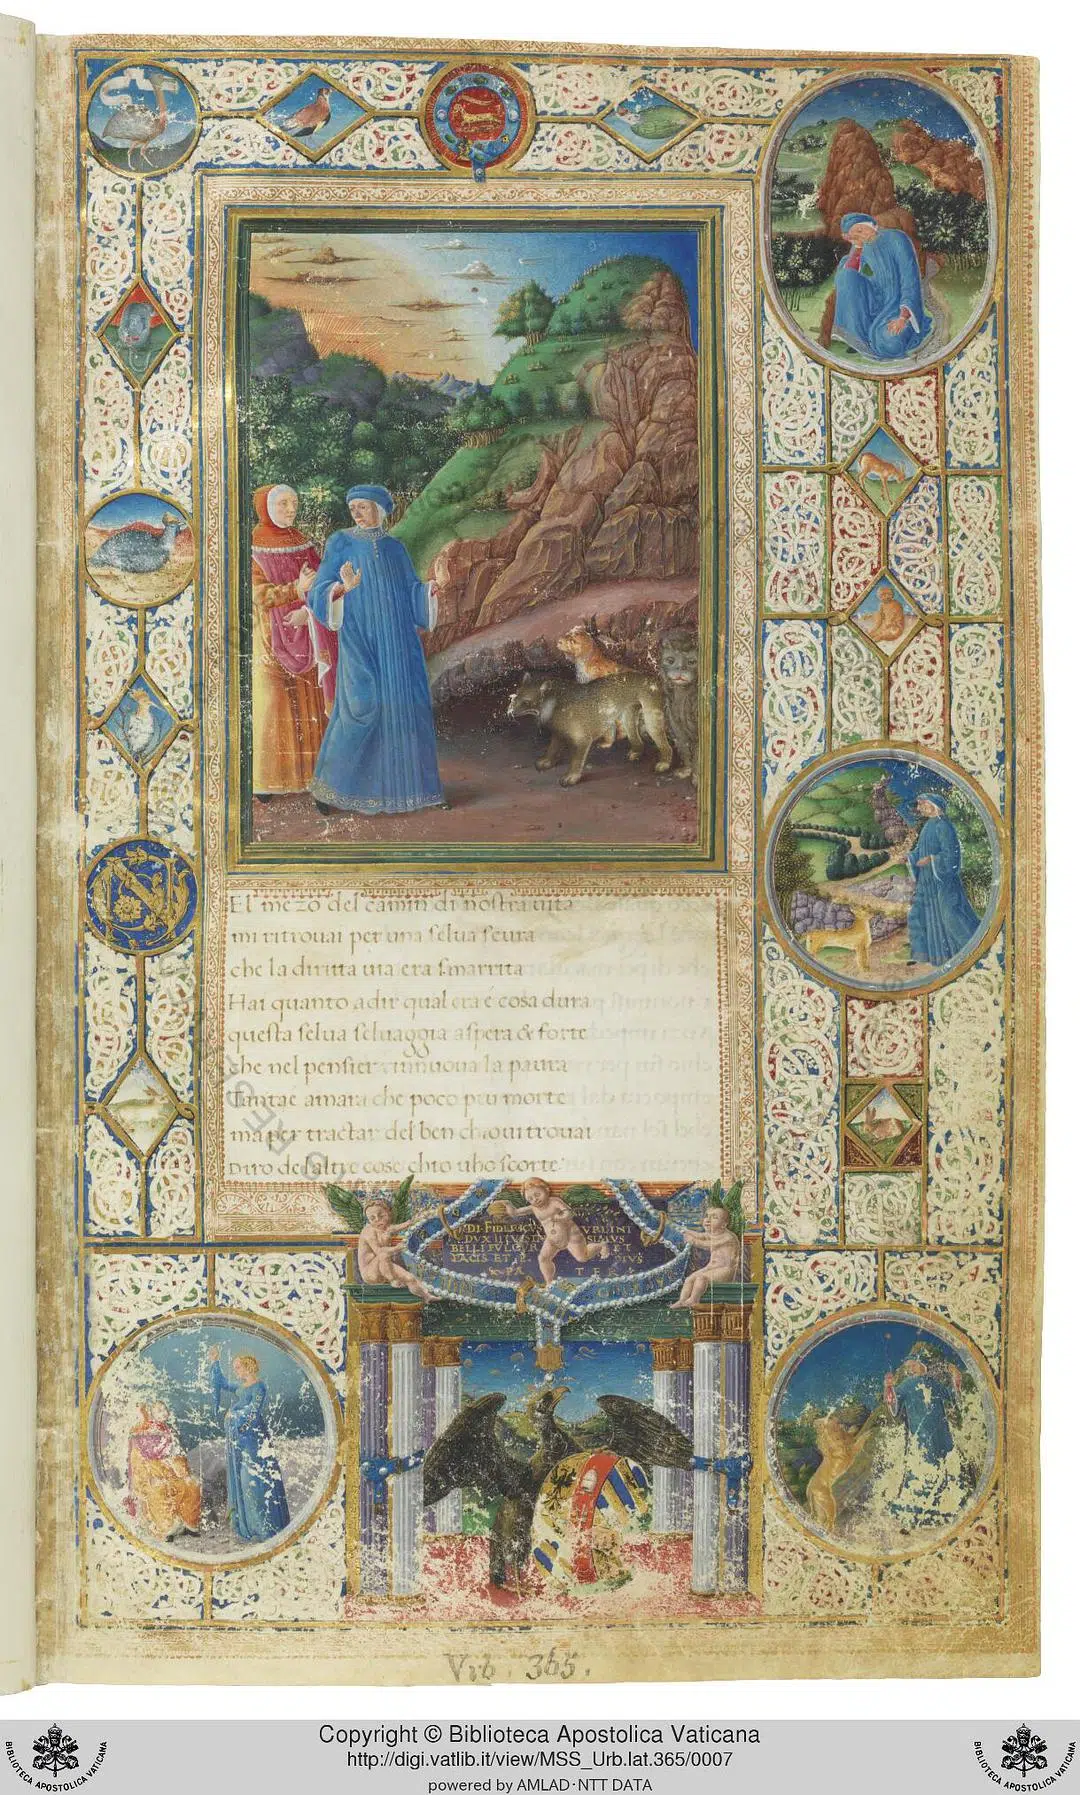 El mezo del camin di nostra uita
mi ritrouai per una selua scura
che la diritta uia era smarrita
Hai quanto adir qual era é cosa dura
questa selua seluaggia aspera & forte
che nel pensier rinuoua la paura
Tantae amara che poco piu morte
ma per tractar del ben chioui trouai
Diro delaltre cose chio uho scorte
DI. FIDERICVS VRLINI
DVX
BELLI FVLGVR ET
PACIS ET P. PIVS
PA TER
Vrb. 365.
Copyright © Biblioteca Apostolica Vaticana
http://digi.vatlib.it/view/MSS_Urb.lat.365/0007
powered by AMLAD·NTT DATA
BIBLIOTECA APOSTOLICA VATICANA
BIBLIOTECA APOSTOLICA VATICANA